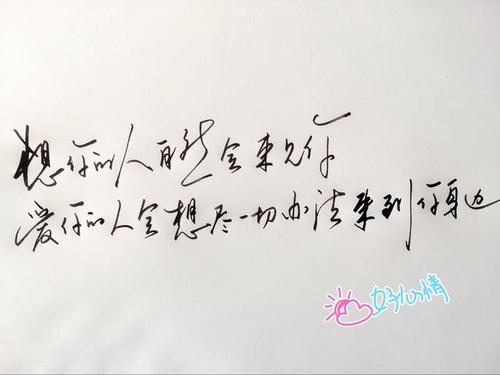 想你的人自然会来见你
爱你的人会想尽一切办法来到你身边
好心情